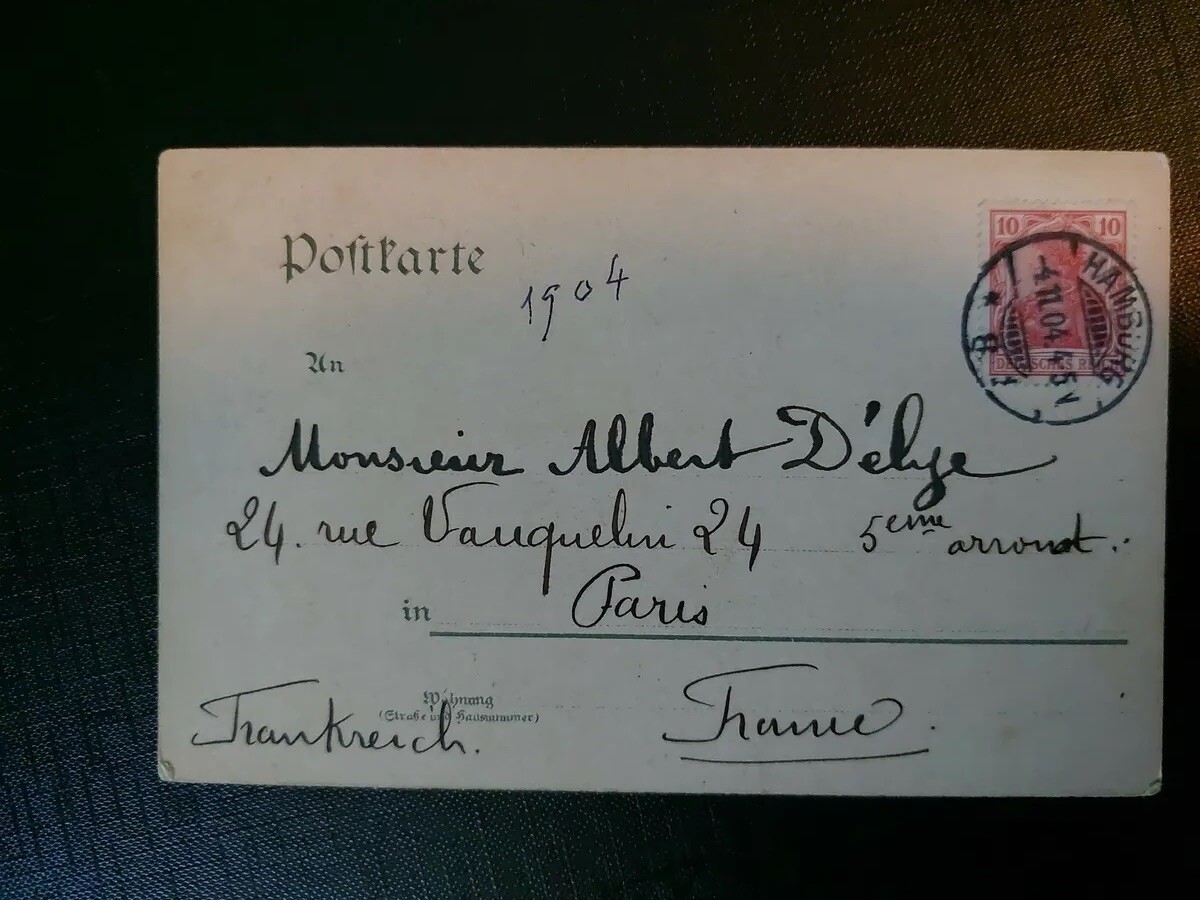 Postkarte
1904
10 10
HAMBURG
-4.11.04.4-5 V
* 1
DEUTSCHES REICH
An
Monsieur Albert Délye
24. rue Vauquelin 24 5eme arrondt.
in Paris
Wohnung
(Straße und Hausnummer)
Frankreich. France.